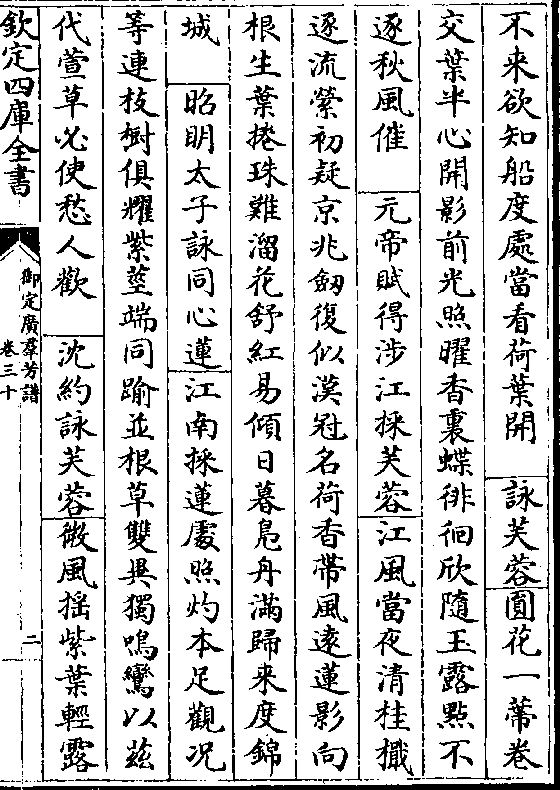 不来欲知船度處當看荷葉開　詠芙蓉圓花一蔕卷
交葉半心開影前光照曜香裏蝶徘徊欣隨玉露㸃不
逐秋風催　元帝賦得渉江採芙蓉江風當夜清桂檝
逐流縈初疑京兆劒復似漢冠名荷香帶風逺蓮影向
根生葉捲珠難溜花舒紅易傾日暮鳬舟滿歸来度錦
城　昭明太子詠同心蓮江南採蓮處照灼本足觀况
等連枝樹俱耀紫莖端同踰並根草雙異獨鳴鸞以兹
代萱草必使愁人歡　沈約詠芙蓉微風揺紫葉輕露
欽定四庫全書
御定廣羣芳譜
卷三十
二